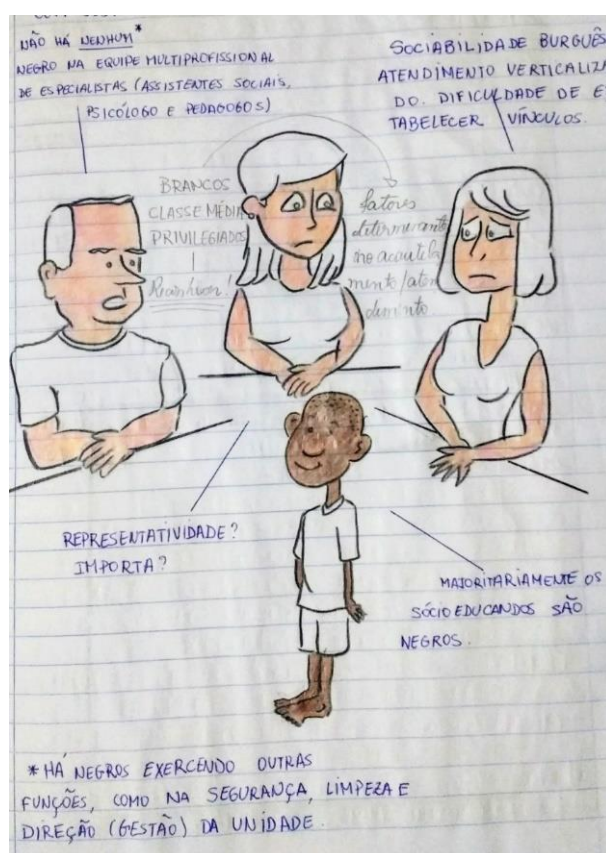 NÃO HÁ NENHUM*
NEGRO NA EQUIPE MULTIPROFISSIONAL
DE ESPECIALISTAS (ASSISTENTES SOCIAIS,
PSICÓLOGO E PEDAGOGOS)
SOCIABILIDADE BURGUÊS
ATENDIMENTO VERTICALIZA
DO. DIFICULDADE DE ES
TABELECER VÍNCULOS.
BRANCOS
CLASSE MÉDIA
PRIVILEGIADOS
fatores
determinante
no acautela
mento/aten
dimento
REPRESENTATIVIDADE?
IMPORTA?
MAJORITARIAMENTE OS
SÓCIOEDUCANDOS SÃO
NEGROS.
* HÁ NEGROS EXERCENDO OUTRAS
FUNÇÕES, COMO NA SEGURANÇA, LIMPEZA E
DIREÇÃO (GESTÃO) DA UNIDADE.